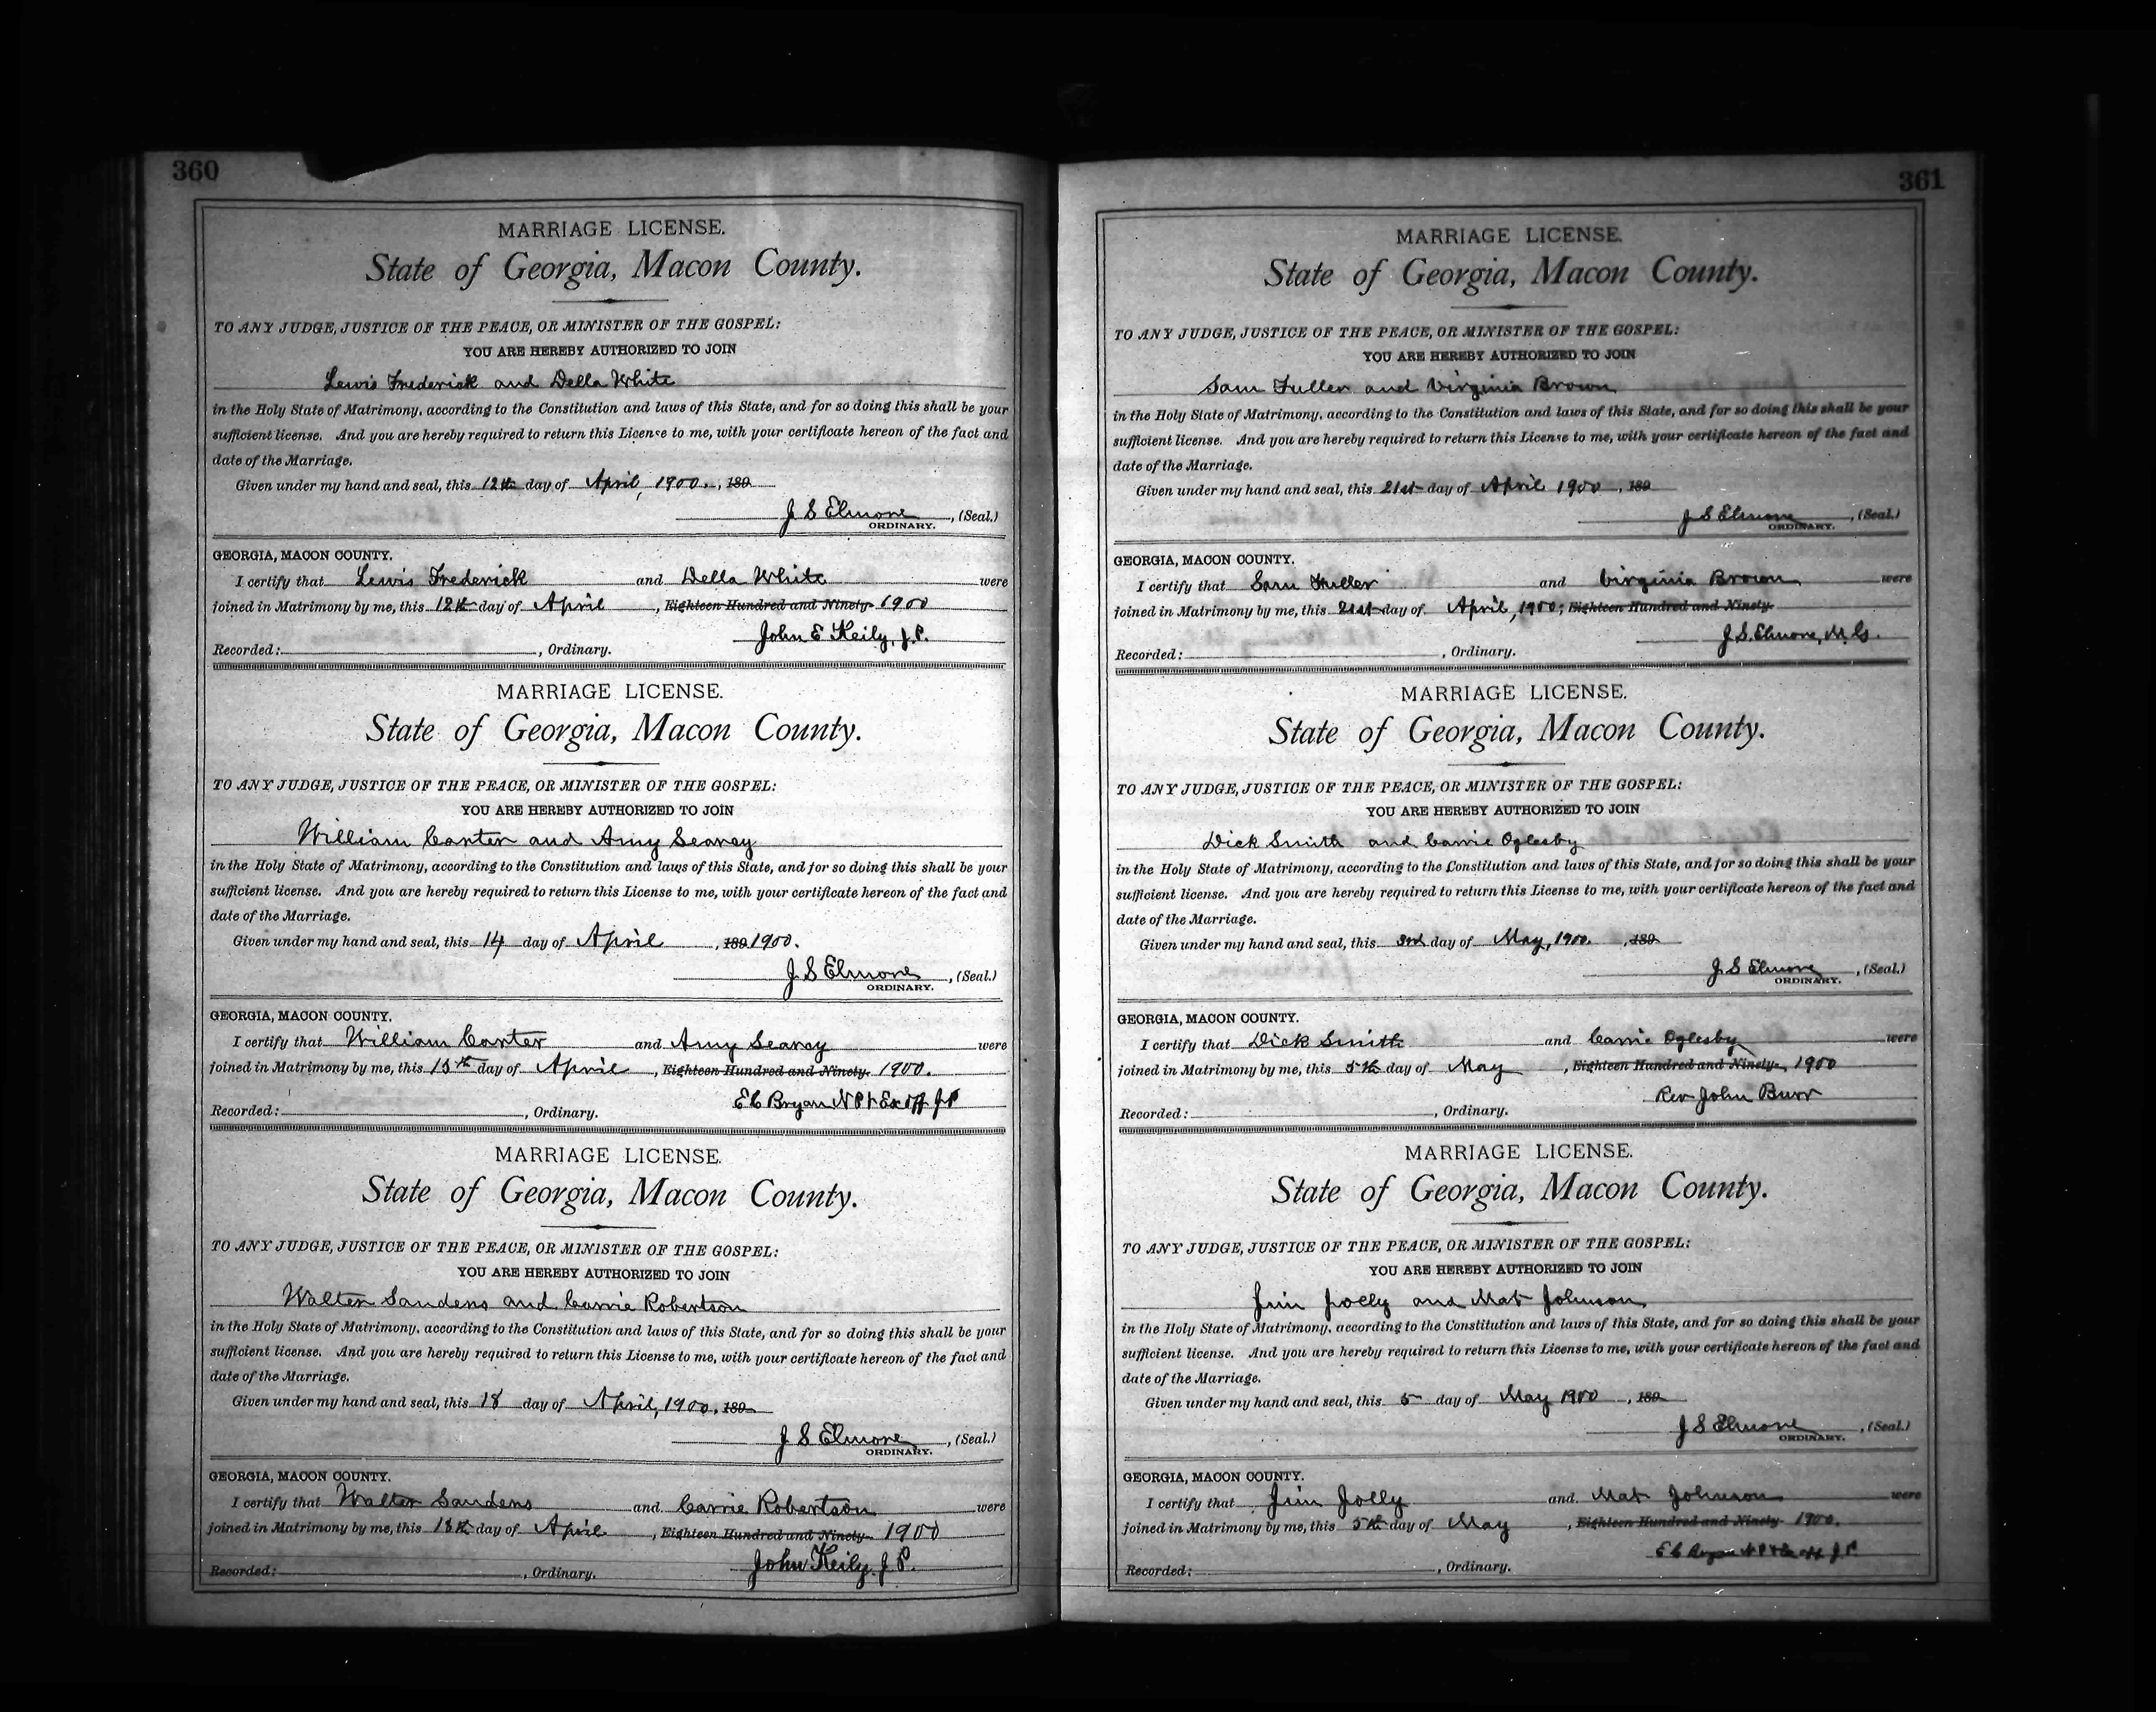 360
MARRIAGE LICENSE.
State of Georgia, Macon County.
TO ANY JUDGE, JUSTICE OF THE PEACE, OR MINISTER OF THE GOSPEL:
YOU ARE HEREBY AUTHORIZED TO JOIN
Lewis Frederick and Della White
in the Holy State of Matrimony, according to the Constitution and laws of this State, and for so doing this shall be your
sufficient license. And you are hereby required to return this License to me, with your certificate hereon of the fact and
date of the Marriage.
Given under my hand and seal, this 12th day of April, 1900., 189
J S Elmore, (Seal.)
ORDINARY.
GEORGIA, MACON COUNTY.
I certify that Lewis Frederick and Della White were
joined in Matrimony by me, this 12th day of April, Eighteen Hundred and Ninety- 1900
John E Keily, J.P.
Recorded: , Ordinary.
MARRIAGE LICENSE.
State of Georgia, Macon County.
TO ANY JUDGE, JUSTICE OF THE PEACE, OR MINISTER OF THE GOSPEL:
YOU ARE HEREBY AUTHORIZED TO JOIN
William Carter and Amy Searcy
in the Holy State of Matrimony, according to the Constitution and laws of this State, and for so doing this shall be your
sufficient license. And you are hereby required to return this License to me, with your certificate hereon of the fact and
date of the Marriage.
Given under my hand and seal, this 14 day of April, 189 1900.
J. S Elmore, (Seal.)
ORDINARY.
GEORGIA, MACON COUNTY.
I certify that William Carter and Amy Searcy were
joined in Matrimony by me, this 15th day of April, Eighteen Hundred and Ninety- 1900.
E C Bryan N P & Ex off J P
Recorded: , Ordinary.
MARRIAGE LICENSE.
State of Georgia, Macon County.
TO ANY JUDGE, JUSTICE OF THE PEACE, OR MINISTER OF THE GOSPEL:
YOU ARE HEREBY AUTHORIZED TO JOIN
Walter Sanders and Carrie Robertson
in the Holy State of Matrimony, according to the Constitution and laws of this State, and for so doing this shall be your
sufficient license. And you are hereby required to return this License to me, with your certificate hereon of the fact and
date of the Marriage.
Given under my hand and seal, this 18 day of April, 1900, 189
J S Elmore, (Seal.)
ORDINARY.
GEORGIA, MACON COUNTY.
I certify that Walter Sanders and Carrie Robertson were
joined in Matrimony by me, this 18th day of April, Eighteen Hundred and Ninety- 1900
John Keily, J. P.
Recorded: , Ordinary.
361
MARRIAGE LICENSE.
State of Georgia, Macon County.
TO ANY JUDGE, JUSTICE OF THE PEACE, OR MINISTER OF THE GOSPEL:
YOU ARE HEREBY AUTHORIZED TO JOIN
Sam Fuller and Virginia Brown
in the Holy State of Matrimony, according to the Constitution and laws of this State, and for so doing this shall be your
sufficient license. And you are hereby required to return this License to me, with your certificate hereon of the fact and
date of the Marriage.
Given under my hand and seal, this 21st day of April 1900, 189
J S Elmore, (Seal.)
ORDINARY.
GEORGIA, MACON COUNTY.
I certify that Sam Fuller and Virginia Brown were
joined in Matrimony by me, this 21st day of April, 1900; Eighteen Hundred and Ninety-
J. S. Elmore, M. G.
Recorded: , Ordinary.
MARRIAGE LICENSE.
State of Georgia, Macon County.
TO ANY JUDGE, JUSTICE OF THE PEACE, OR MINISTER OF THE GOSPEL:
YOU ARE HEREBY AUTHORIZED TO JOIN
Dick Smith and Carrie Oglesby
in the Holy State of Matrimony, according to the Constitution and laws of this State, and for so doing this shall be your
sufficient license. And you are hereby required to return this License to me, with your certificate hereon of the fact and
date of the Marriage.
Given under my hand and seal, this 3rd day of May, 1900. , 189
J. S Elmore, (Seal.)
ORDINARY.
GEORGIA, MACON COUNTY.
I certify that Dick Smith and Carrie Oglesby were
joined in Matrimony by me, this 5th day of May, Eighteen Hundred and Ninety-, 1900
Rev John Burr
Recorded: , Ordinary.
MARRIAGE LICENSE.
State of Georgia, Macon County.
TO ANY JUDGE, JUSTICE OF THE PEACE, OR MINISTER OF THE GOSPEL:
YOU ARE HEREBY AUTHORIZED TO JOIN
Jim Jolly and Mat Johnson
in the Holy State of Matrimony, according to the Constitution and laws of this State, and for so doing this shall be your
sufficient license. And you are hereby required to return this License to me, with your certificate hereon of the fact and
date of the Marriage.
Given under my hand and seal, this 5 day of May 1900, 189
J S Elmore, (Seal.)
ORDINARY.
GEORGIA, MACON COUNTY.
I certify that Jim Jolly and Mat Johnson were
joined in Matrimony by me, this 5th day of May, Eighteen Hundred and Ninety- 1900.
E C Bryan N P & Ex off J. P.
Recorded: , Ordinary.